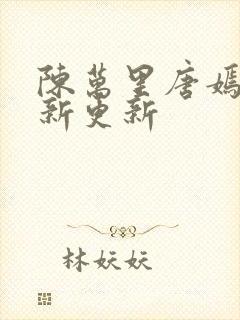 陳萬里唐嫣
新更新
林妖妖